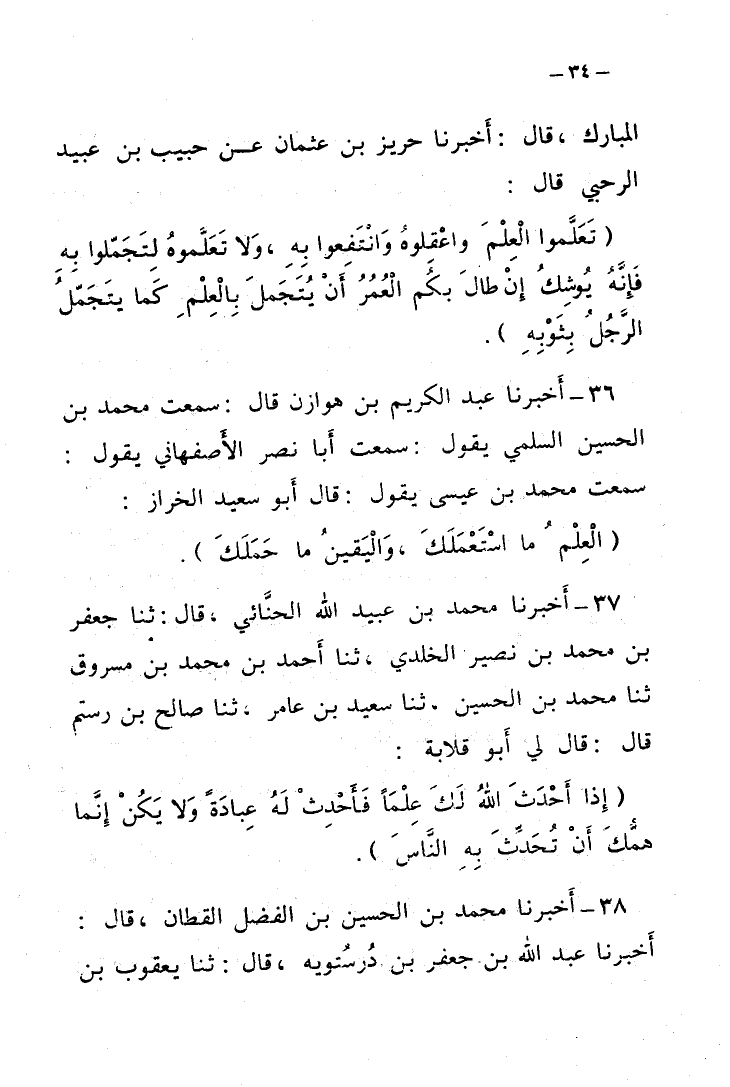 – ٣٤ –
المبارك ، قال : أخبرنا حريز بن عثمان عن حبيب بن عبيد
الرحبي قال :
( تَعَلَّموا الْعِلْمَ واعْقِلوهُ وَانْتَفِعوا بِهِ ، وَلا تَعَلَّموهُ لِتَجَمّلوا بِهِ
فَإِنَّهُ يُوشِكُ إنْ طالَ بكُم الْعُمُرُ أَنْ يُتَجَملَ بِالْعِلْمِ كَما يتَجَمّلُ
الرَّجُلُ بِثَوْبِهِ ) .
٣٦ – أخبرنا عبد الكريم بن هوازن قال : سمعت محمد بن
الحسين السلمي يقول : سمعت أبا نصر الأصفهاني يقول :
سمعت محمد بن عيسى يقول : قال أبو سعيد الخراز :
( الْعِلْمُ ما اسْتَعْمَلَكَ ، وَالْيَقينُ ما حَمَلَكَ ) .
٣٧ – أخبرنا محمد بن عبيد الله الحنَّائي ، قال : ثنا جعفر
بن محمد بن نصير الخلدي ، ثنا أحمد بن محمد بن مسروق
ثنا محمد بن الحسين . ثنا سعيد بن عامر ، ثنا صالح بن رستم
قال : قال لي أبو قلابة :
( إذا أَحْدَثَ اللهُ لَكَ عِلْمَاً فَأَحْدِثْ لَهُ عِبادَةً وَلا يَكُنْ إنَّما
همُّكَ أَنْ تُحَدِّثَ بِهِ النَّاسَ ) .
٣٨ – أخبرنا محمد بن الحسين بن الفضل القطان ، قال :
أخبرنا عبد الله بن جعفر بن دُرسْتويه ، قال : ثنا يعقوب بن